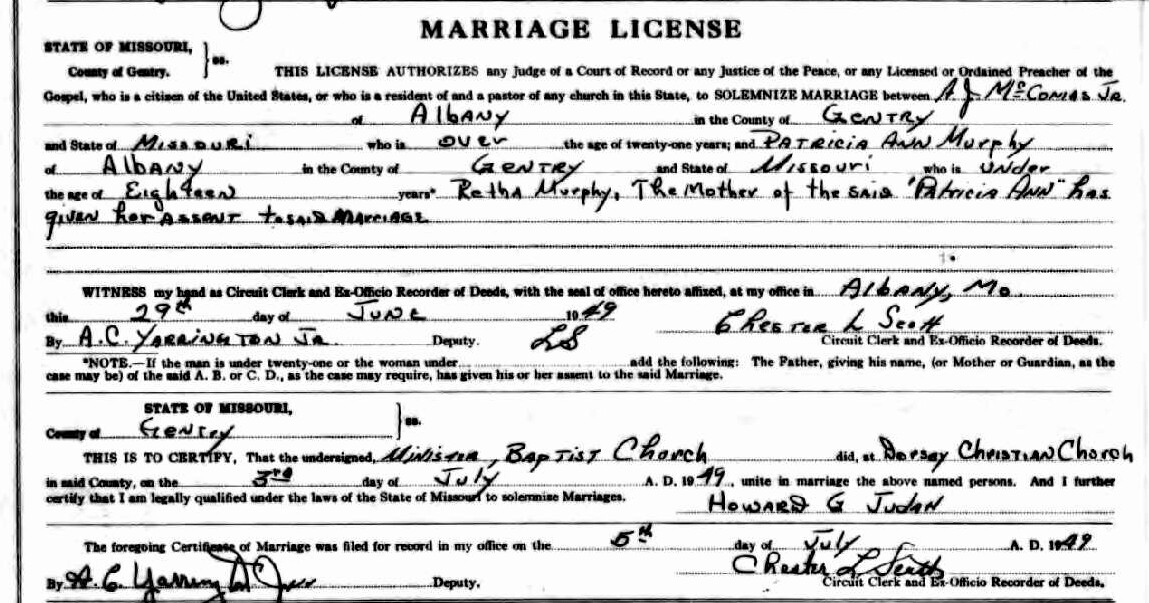 MARRIAGE LICENSE
STATE OF MISSOURI, } ss.
County of Gentry.
THIS LICENSE AUTHORIZES any Judge of a Court of Record or any Justice of the Peace, or any Licensed or Ordained Preacher of the
Gospel, who is a citizen of the United States, or who is a resident of and a pastor of any church in this State, to SOLEMNIZE MARRIAGE between A J McComas Jr.
of Albany in the County of Gentry
and State of Missouri who is over the age of twenty-one years; and Patricia Ann Murphy
of Albany in the County of Gentry and State of Missouri who is under
the age of Eighteen years* Retha Murphy, The Mother of the said "Patricia Ann" has
given her assent to said Marriage
WITNESS my hand as Circuit Clerk and Ex-Officio Recorder of Deeds, with the seal of office hereto affixed, at my office in Albany, Mo
this 29th day of June 1949
By A.C. Yarrington Jr. Deputy. LS Chester L Scott
Circuit Clerk and Ex-Officio Recorder of Deeds.
*NOTE.—If the man is under twenty-one or the woman under add the following: The Father, giving his name, (or Mother or Guardian, as the
case may be) of the said A. B. or C. D., as the case may require, has given his or her assent to the said Marriage.
STATE OF MISSOURI, } ss.
County of Gentry
THIS IS TO CERTIFY, That the undersigned, Minister, Baptist Church did, at Dorsay Christian Church
in said County, on the 3rd day of July A. D. 1949, unite in marriage the above named persons. And I further
certify that I am legally qualified under the laws of the State of Missouri to solemnize Marriages. Howard G
The foregoing Certificate of Marriage was filed for record in my office on the 5th day of July A. D. 1949
By A. C. Yarrington Jr Deputy. Chester L Scott
Circuit Clerk and Ex-Officio Recorder of Deeds.